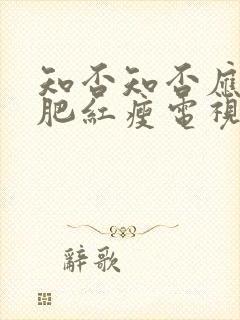 知否知否應
肥紅瘦電視
辭歌